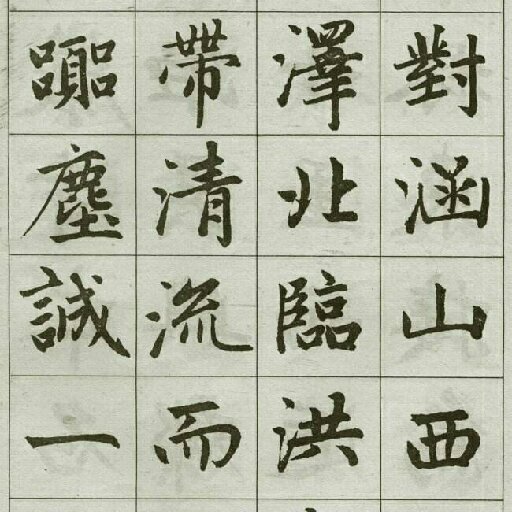 對涵山西
澤北臨洪
帶清流而
囂塵誠一